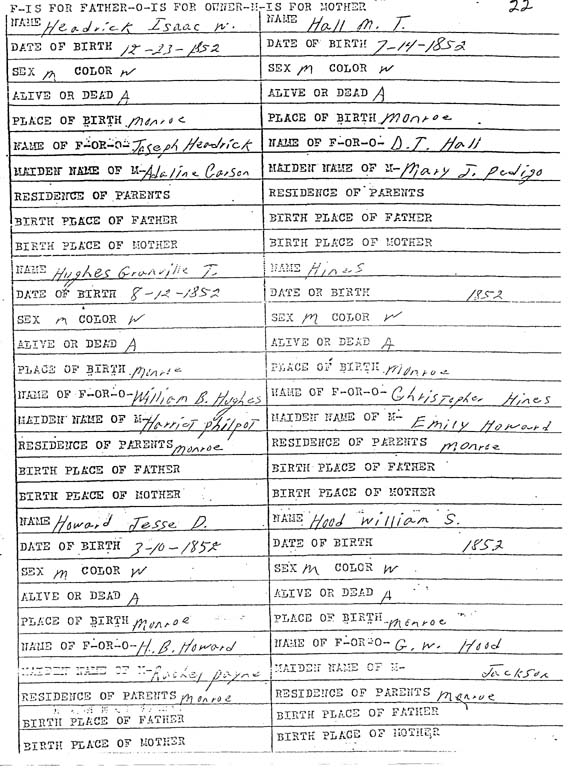 F-IS FOR FATHER-O-IS FOR OWNER-M-IS FOR MOTHER 22
NAME Headrick Isaac W.
DATE OF BIRTH 12-23-1852
SEX M COLOR W
ALIVE OR DEAD A
PLACE OF BIRTH Monroe
NAME OF F-OR-O- Joseph Headrick
MAIDEN NAME OF M- Adaline Carson
RESIDENCE OF PARENTS
BIRTH PLACE OF FATHER
BIRTH PLACE OF MOTHER
NAME Hall M. T.
DATE OF BIRTH 7-14-1852
SEX M COLOR W
ALIVE OR DEAD A
PLACE OF BIRTH Monroe
NAME OF F-OR-O- D.T. Hall
MAIDEN NAME OF M- Mary J. Perdigo
RESIDENCE OF PARENTS
BIRTH PLACE OF FATHER
BIRTH PLACE OF MOTHER
NAME Hughes Granville T.
DATE OF BIRTH 8-12-1852
SEX M COLOR W
ALIVE OR DEAD A
PLACE OF BIRTH Monroe
NAME OF F-OR-O- William B. Hughes
MAIDEN NAME OF M- Harriet Philpot
RESIDENCE OF PARENTS Monroe
BIRTH PLACE OF FATHER
BIRTH PLACE OF MOTHER
NAME Hines
DATE OR BIRTH 1852
SEX M COLOR W
ALIVE OR DEAD A
PLACE OF BIRTH Monroe
NAME OF F-OR-O- Christopher Hines
MAIDEN NAME OF M- Emily Howard
RESIDENCE OF PARENTS Monroe
BIRTH PLACE OF FATHER
BIRTH PLACE OF MOTHER
NAME Howard Jesse D.
DATE OF BIRTH 3-10-1852
SEX M COLOR W
ALIVE OR DEAD A
PLACE OF BIRTH Monroe
NAME OF F-OR-O- H.B. Howard
MAIDEN NAME OF M- Payne
RESIDENCE OF PARENTS Monroe
BIRTH PLACE OF FATHER
BIRTH PLACE OF MOTHER
NAME Hood William S.
DATE OF BIRTH 1852
SEX M COLOR W
ALIVE OR DEAD A
PLACE OF BIRTH Monroe
NAME OF F-OR-O- G. W. Hood
MAIDEN NAME OF M- Jackson
RESIDENCE OF PARENTS Monroe
BIRTH PLACE OF FATHER
BIRTH PLACE OF MOTHER